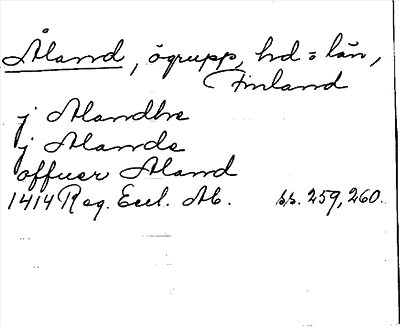 Åland, ögrupp, hd = län,
Finland
j Alandhe
j Alande
offuer Aland
1414 Reg. Eccl. Ab. ss. 259, 260.